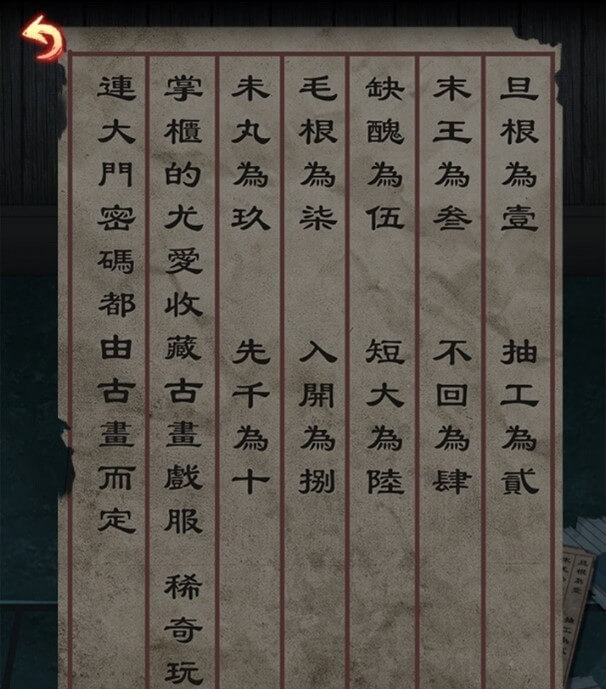 旦根為壹 抽工為貳
末王為叁 不回為肆
缺醜為伍 短大為陸
毛根為柒 入開為捌
未丸為玖 先千為十
掌櫃的尤愛收藏古畫戲服 稀奇玩
連大門密碼都由古畫而定